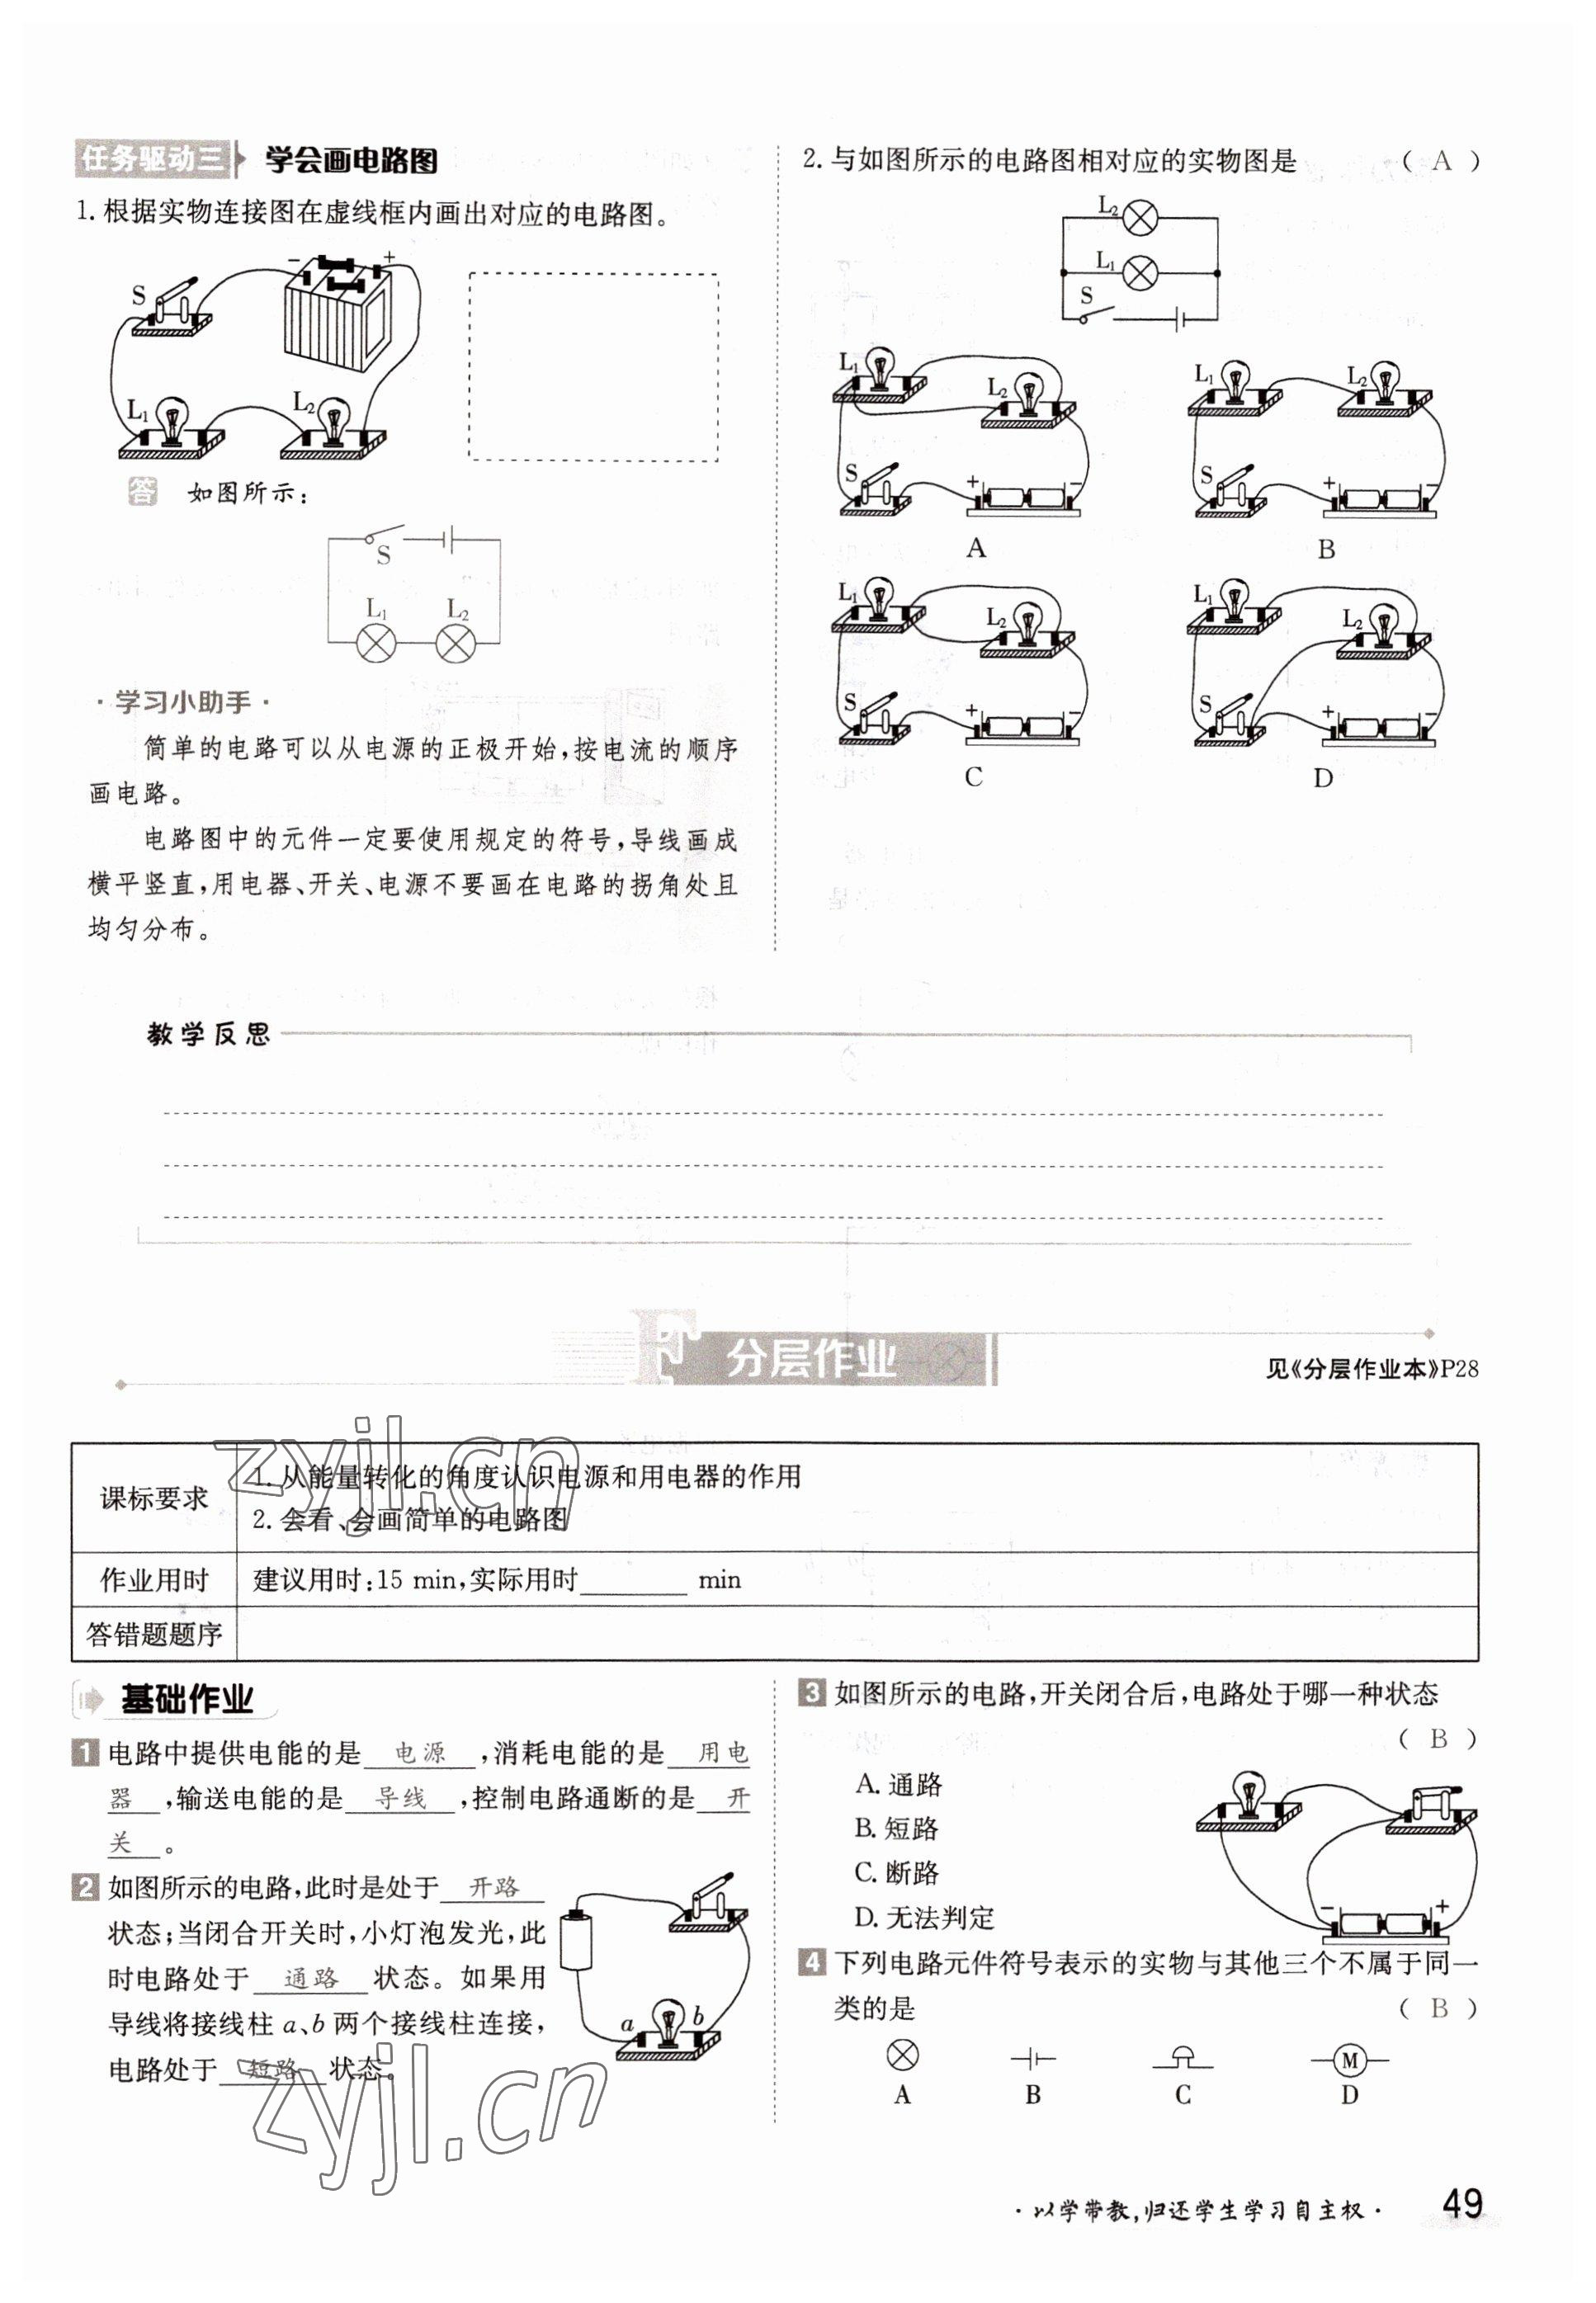 任务驱动三 学会画电路图
1. 根据实物连接图在虚线框内画出对应的电路图。
S
−
+
L₁
L₂
答 如图所示：
S
L₁
L₂
·学习小助手·
简单的电路可以从电源的正极开始，按电流的顺序
画电路。
电路图中的元件一定要使用规定的符号，导线画成
横平竖直，用电器、开关、电源不要画在电路的拐角处且
均匀分布。
2. 与如图所示的电路图相对应的实物图是 （ A ）
L₂
L₁
S
L₁
L₂
S
+
−
A
L₁
L₂
S
+
−
B
L₁
L₂
S
+
−
C
L₁
L₂
S
+
−
D
教学反思
F 分层作业
见《分层作业本》P28
课标要求
1. 从能量转化的角度认识电源和用电器的作用
2. 会看、会画简单的电路图
作业用时
建议用时：15 min，实际用时 min
答错题题序
基础作业
1 电路中提供电能的是 电源 ，消耗电能的是 用电
器 ，输送电能的是 导线 ，控制电路通断的是 开
关 。
2 如图所示的电路，此时是处于 开路
状态；当闭合开关时，小灯泡发光，此
时电路处于 通路 状态。如果用
导线将接线柱 a、b 两个接线柱连接，
电路处于 短路 状态。
a
b
3 如图所示的电路，开关闭合后，电路处于哪一种状态
（ B ）
A. 通路
B. 短路
C. 断路
D. 无法判定
−
+
4 下列电路元件符号表示的实物与其他三个不属于同一
类的是 （ B ）
M
A B C D
·以学带教，归还学生学习自主权· 49
zyjl.cn
zyjl.cn